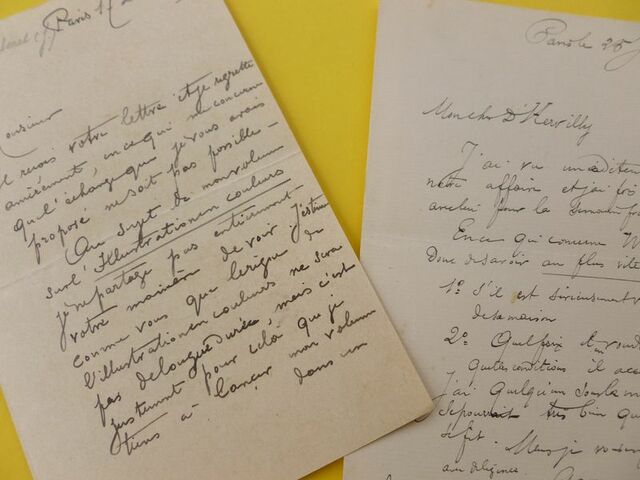 Paris 17
Monsieur
Je reçois votre lettre et je regrette
amèrement, en ce qui me concerne
qu'l'échange que je vous avais
proposé ne soit pas possible –
Au sujet de mon volum
sur l'Illustration en couleurs
je n'partage pas entièrement
votre manière de voir. J'estime
comme vous que le règne de
l'illustration en couleurs ne sera
pas de longue durée, mais c'est
justement pour cela que je
tiens à lancer mon volum
dans un
Paris le 25
Mon cher D'Hervilly
J'ai vu un éditeu
notre affaire et j'ai
pour la
En ce qui concerne M
donc de savoir au plus vite
1º S'il est sérieusement
de la maison
2º Quel prix il voud
quelles conditions il acc
j'ai quelqu'un sous la m
se pourrait très bien qu
Mais je
diligence